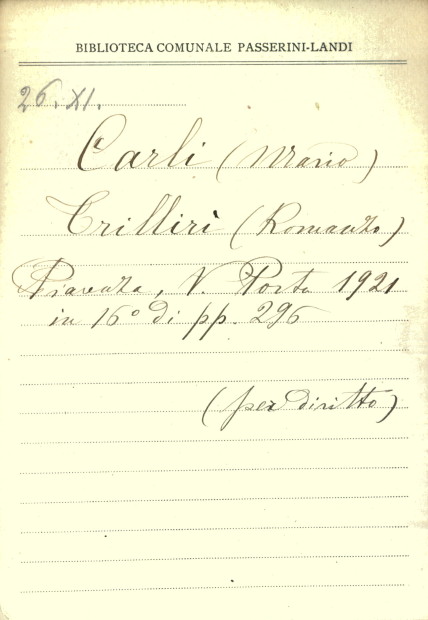 BIBLIOTECA COMUNALE PASSERINI-LANDI
26. XI.
Carli (Mario)
Trillirì (Romanzo)
Piacenza, V. Porta 1921
in 16° di pp. 296
(per diritto)